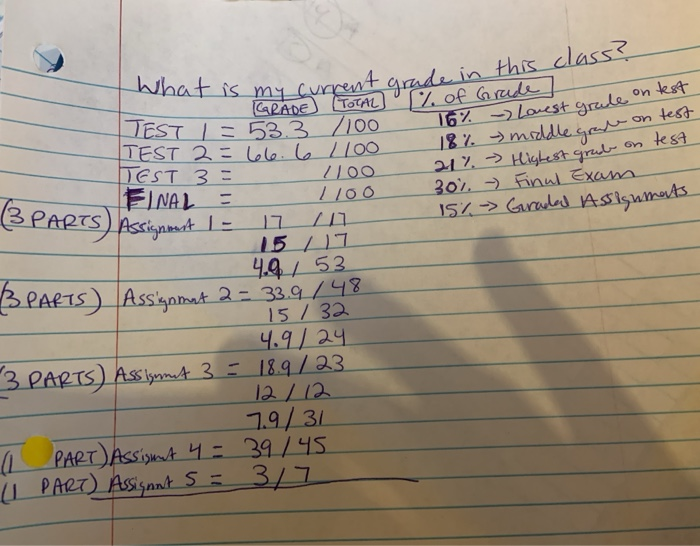 What is my current grade in this class?
GRADE TOTAL % of Grade
TEST 1 = 53.3 /100 16% → Lowest grade on test
TEST 2 = 66.6 /100 18% → middle grade on test
TEST 3 = /100 21% → Highest grade on test
FINAL = /100 30% → Final Exam
(3 PARTS) Assignment 1 = 17 /17 15% → Graded Assignments
15 / 17
4.9 / 53
(3 PARTS) Assignmet 2 = 33.9 / 48
15 / 32
4.9 / 24
(3 PARTS) Assignmet 3 = 18.9 / 23
12 / 12
7.9 / 31
(1 PART) Assignmt 4 = 39 / 45
(1 PART) Assignmt 5 = 3 / 7